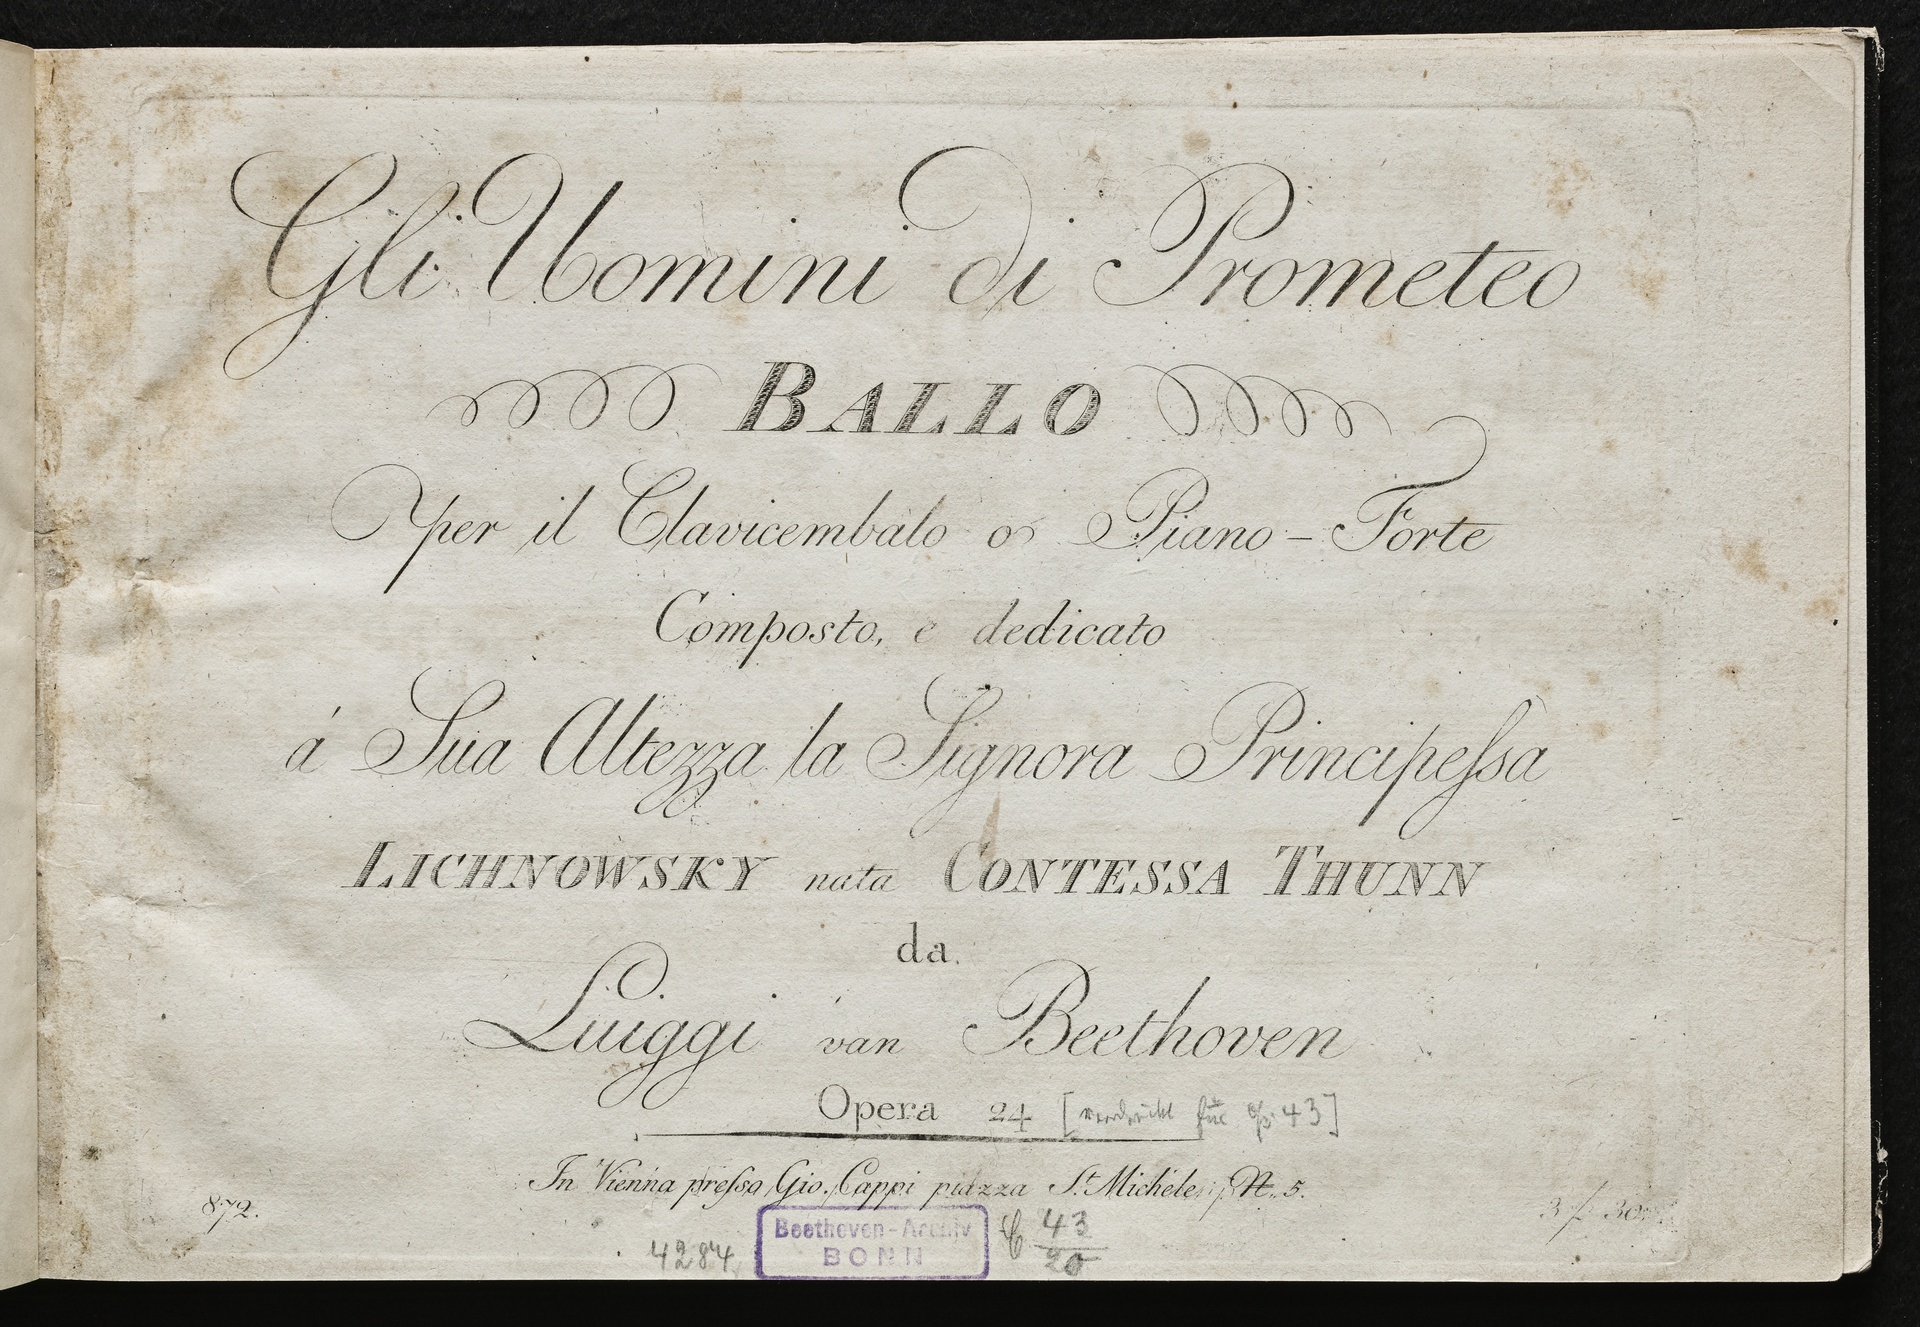 Gli Uomini di Prometeo
BALLO
per il Clavicembalo o Piano-Forte
Composto, e dedicato
á Sua Altezza la Signora Principeſsa
LICHNOWSKY nata CONTESSA THUNN
da
Luiggi van Beethoven
Opera 24 [verdruckt für op. 43]
In Vienna preſso Gio. Cappi piazza St. Michele N. 5.
872.
3 f 30
Beethoven-Archiv
BONN
4284
C 43/20